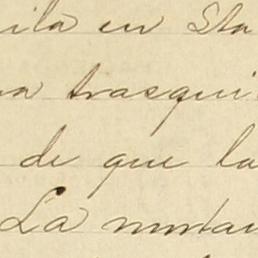 ila en Sta
a trasqui
de que la
La